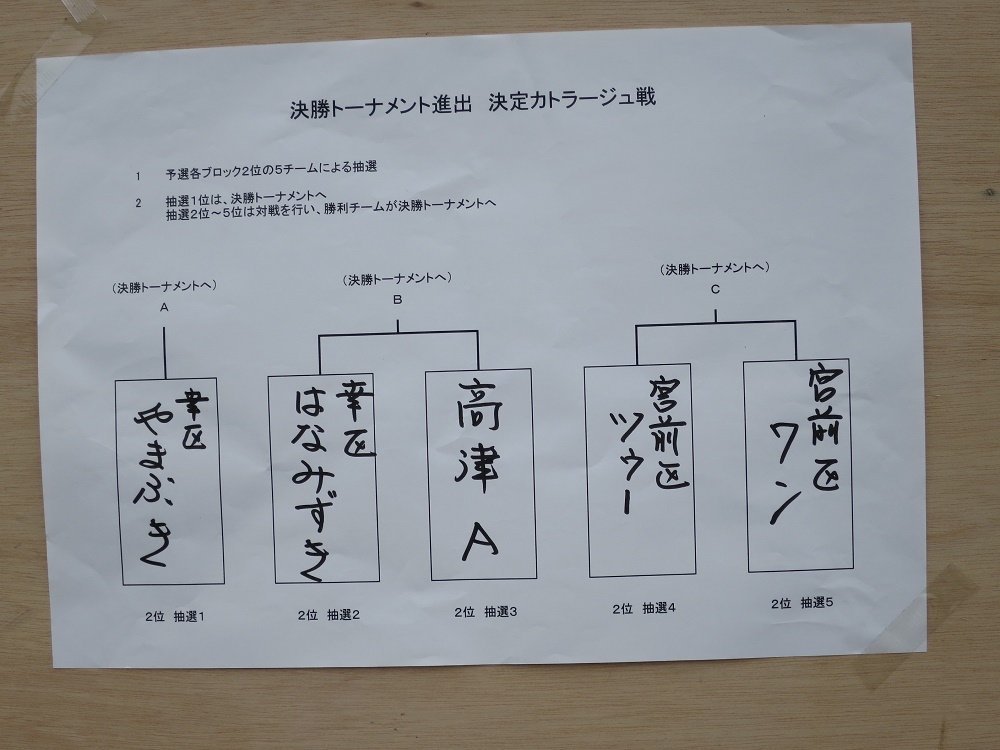 決勝トーナメント進出　決定カトラージュ戦
1　予選各ブロック2位の5チームによる抽選
2　抽選1位は、決勝トーナメントへ
抽選2位～5位は対戦を行い、勝利チームが決勝トーナメントへ
(決勝トーナメントへ)
A
(決勝トーナメントへ)
B
(決勝トーナメントへ)
C
幸区
やまぶき
幸区
はなみずき
高津A
宮前区
ツゥー
宮前区
ワン
2位　抽選1
2位　抽選2
2位　抽選3
2位　抽選4
2位　抽選5